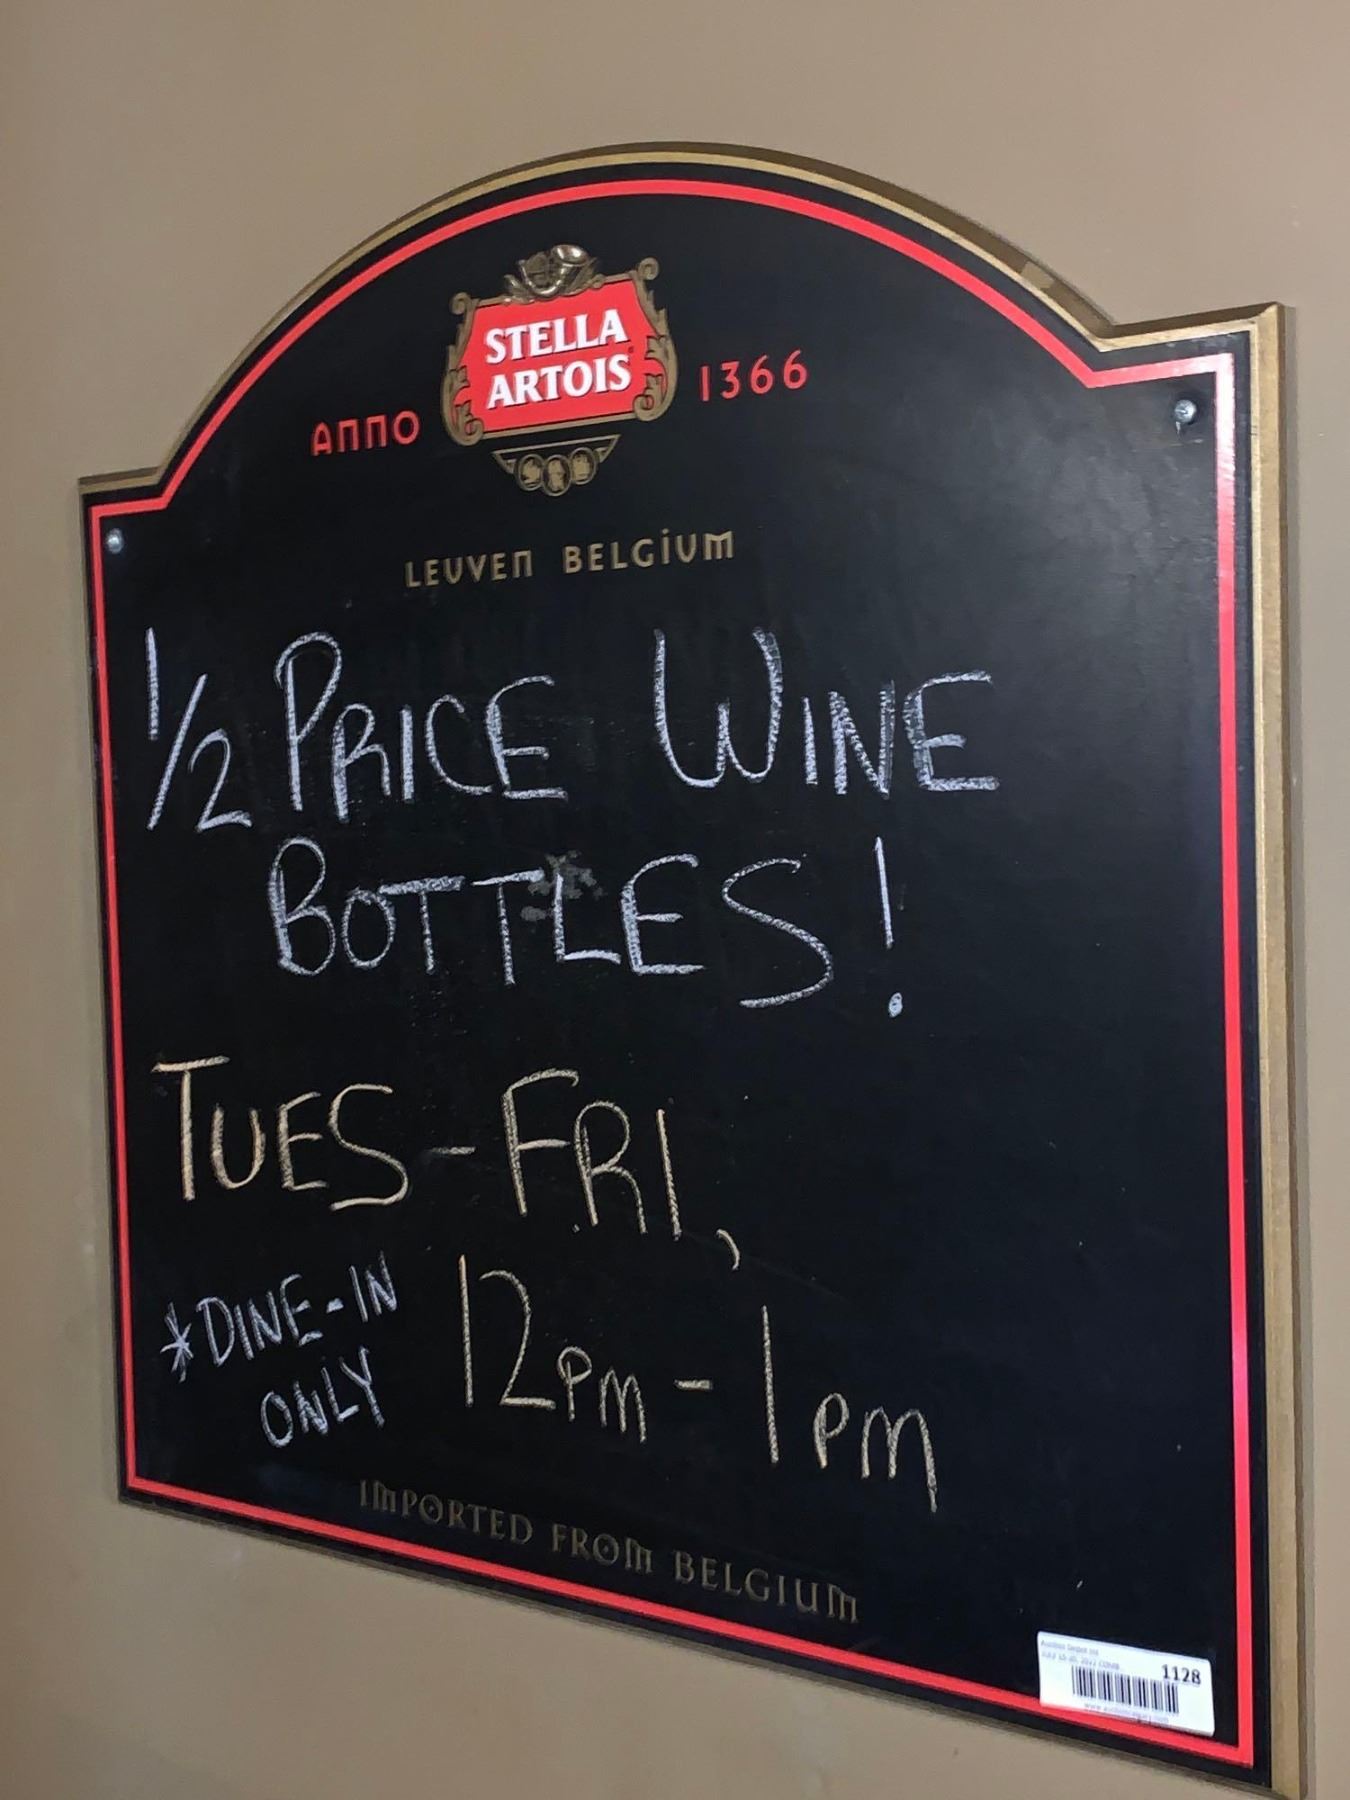 STELLA
ARTOIS
ANNO 1366
LEUVEN BELGIUM
1/2 PRICE WINE
BOTTLES!
TUES-FRI,
*DINE-IN
ONLY
12PM-1PM
IMPORTED FROM BELGIUM
1128